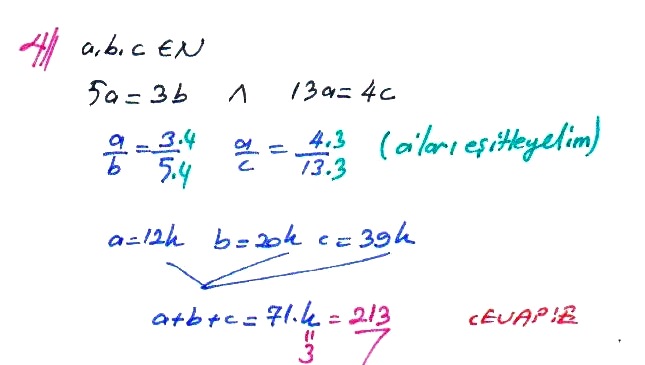 4) a,b,c ∈ N
5a = 3b ∧ 13a = 4c
a/b = 3.4/5.4 a/c = 4.3/13.3 (a'ları eşitleyelim)
a=12k b=20k c=39k
a+b+c = 71.k = 213
3
CEVAP: B